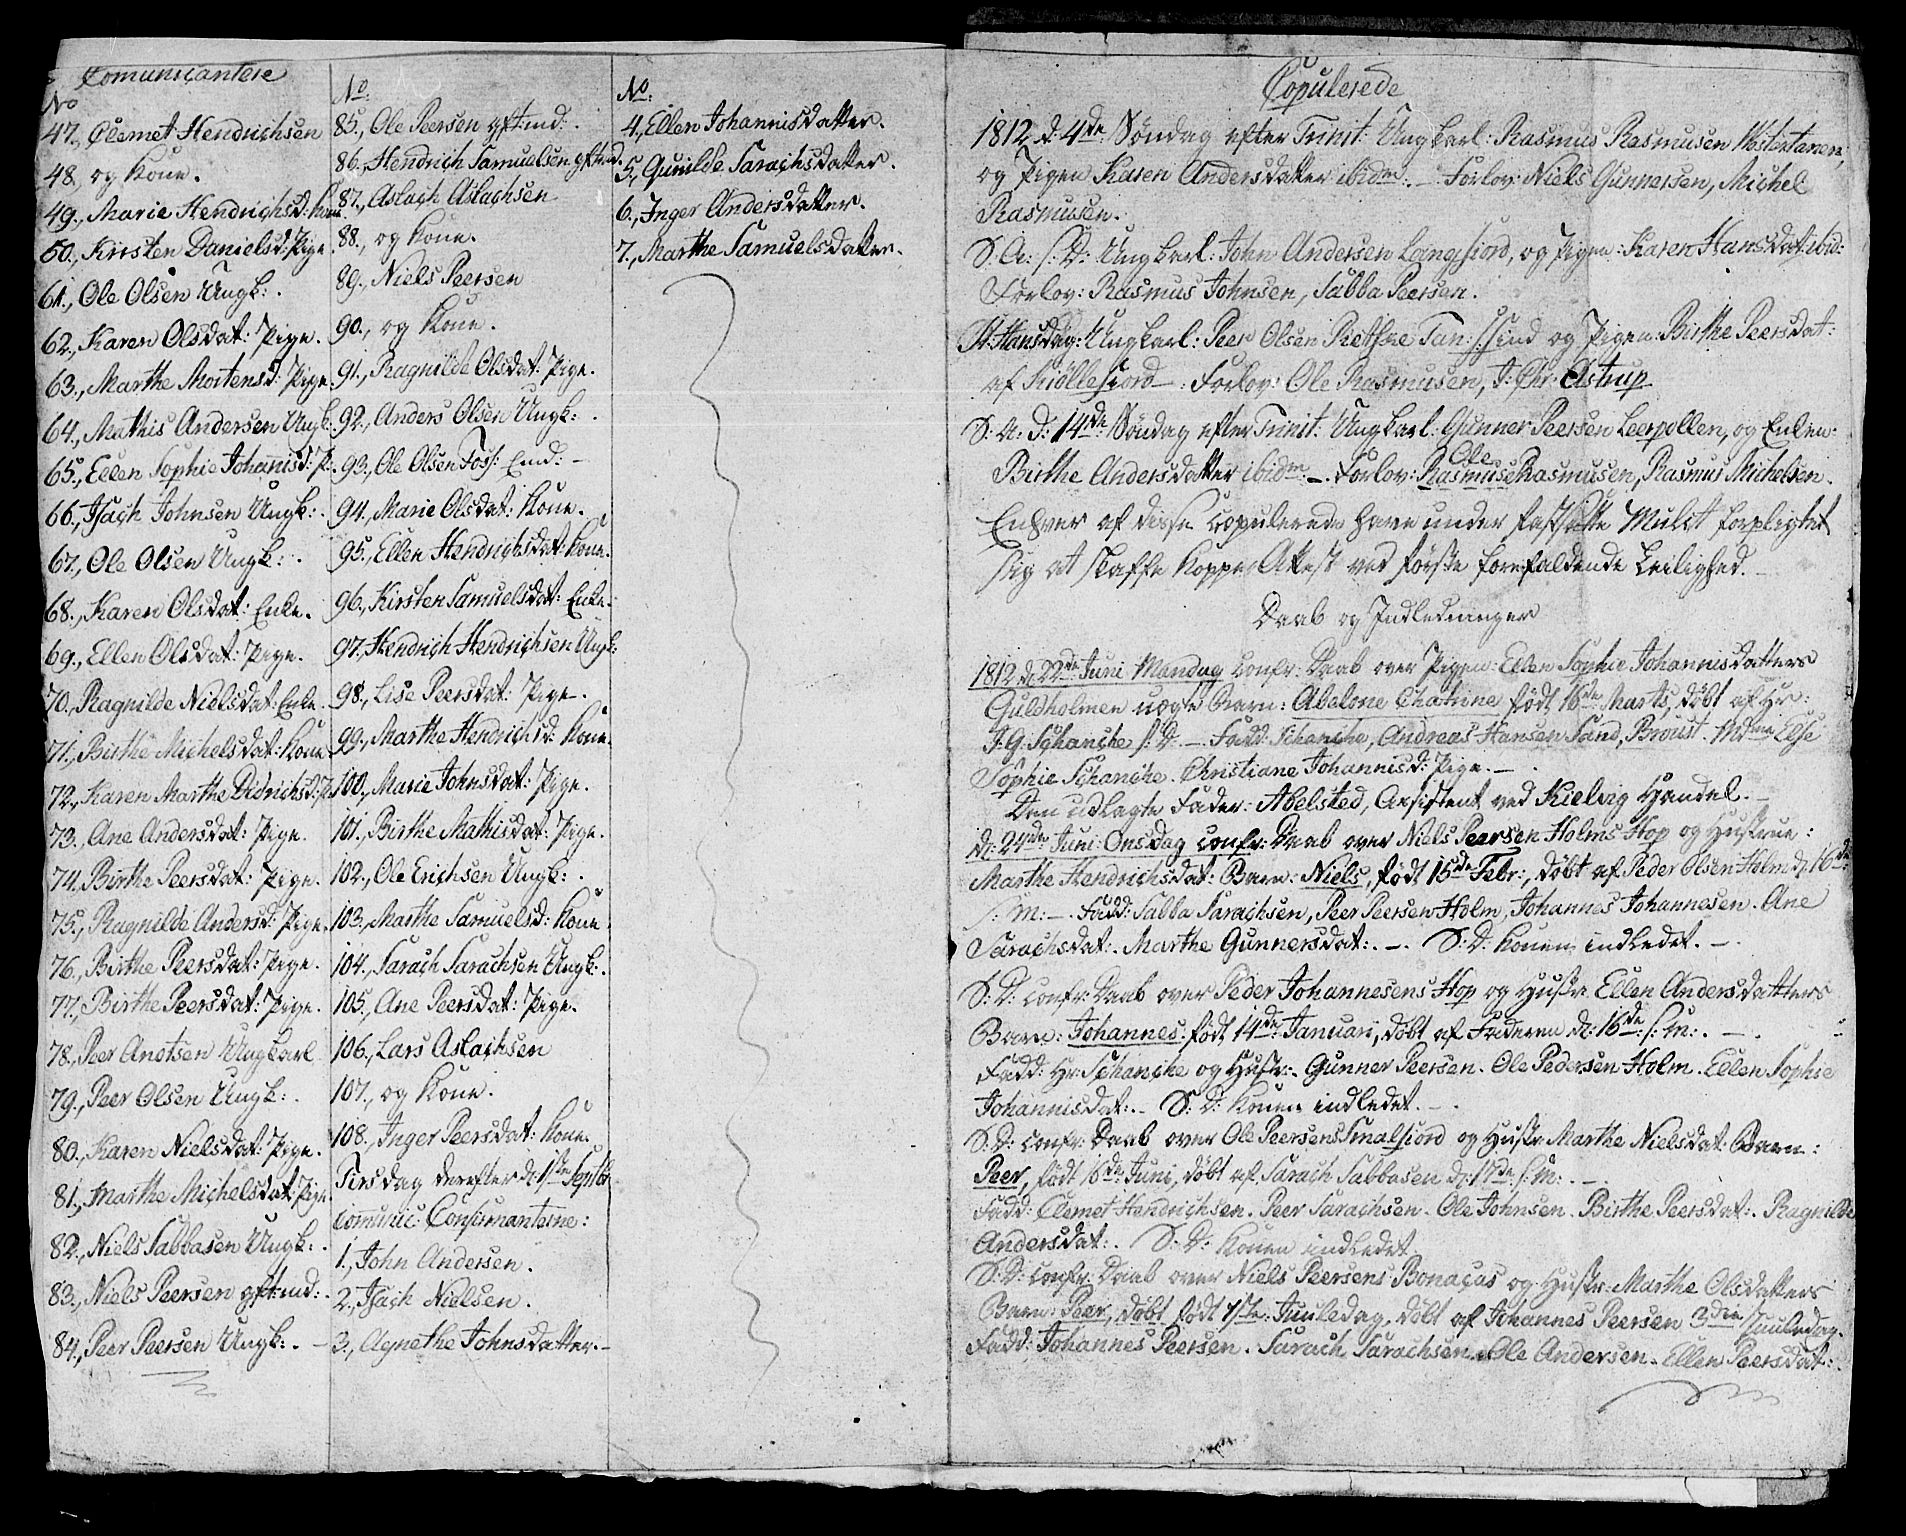 Comunicantere
No
47., Clemet Hendrichsen
48., og Kone.
49., Marie Hendrichsd: Kone
50., Kirsten Danielsd: Pige.
61., Ole Olsen Ungk: .
62., Karen Olsdat: Pige.
63., Marthe Mortensd: Pige.
64., Mathis Andersen Ungk:
65., Ellen Sophie Johannisd: P:
66., Isach Johnsen Ungk: .
67., Ole Olsen Ungk: .
68., Karen Olsdat: Enke.
69., Ellen Olsdat: Pige.
70., Ragnilde Nielsdat: Enke.
71., Birthe Michelsdat: Kone
72., Karen Marthe Didrichsd: P.
73., Ane Andersdat: Pige.
74., Birthe Peersdat: Pige.
75., Ragnilde Andersd: Pige.
76., Birthe Peersdat: Pige.
77., Birthe Peersdat: Pige.
78., Peer Anotsen Ungkarl
79., Peer Olsen Ungk: .
80., Karen Nielsdat: Pige.
81., Marthe Michelsdat: Pige
82., Niels Sabbasen Ungk: .
83., Niels Peersen gft:md: .
84., Peer Peersen Ungk: . –
No:
85., Ole Peersen gft:md: .
86., Hendrich Samuelsen gft:md.
87., Aslach Aslachsen
88., og Kone.
89., Niels Peersen
90., og Kone.
91., Ragnilde Olsdat: Pige.
92., Anders Olsen Ungk: .
93., Ole Olsen Foss: End: –
94., Marie Olsdat: Kone.
95., Ellen Hendrichsdat: Kone.
96., Kirsten Samuelsdat: Enke.
97., Hendrich Hendrichsen Ungk:
98., Lise Peersdat: Pige.
99., Marthe Hendrichsd: Kone.
100., Marie Johnsdat: Pige.
101., Birthe Mathisdat: Pige.
102., Ole Erichsen Ungk: .
103., Marthe Samuelsd: Kone.
104., Sarach Sarachsen Ungk: .
105., Ane Peersdat: Pige.
106., Lars Aslachsen
107., og Kone.
108., Inger Peersdat: Kone.
Tirsdag derefter d: 1ste Septbr
communic: Confirmanterne:
1., John Andersen.
2., Isach Nielsen.
3., Agnethe Johnsdatter. –
No:
4., Ellen Johannisdatter.
5., Gunilde Sarachsdatter.
6., Inger Andersdatter.
7., Marthe Samuelsdatter.
Copulerede
1812 d: 4de Søndag efter Trinit: Ungkarl: Rasmus Rasmusen Westertanen,
og Pigen Karen Andersdatter ibidm: – Forlov: Niels Gunnersen, Michel
Rasmusen.
S: A: s: D: Ungkarl: John Andersen Langfjord, og Pigen: Karen Hansdat: ibid:
Forlov: Rasmus Johnsen, Sabba Peersen.
St: Hansdag: Ungkarl: Peer Olsen Tan: og Pigen: Birthe Peersdat:
af Kiøllefiord –: Forlov: Ole Rasmusen, J: Chr: Astrup
S: A: d: 14de Søndag efter Trinit: Ungkarl: Gunner Peersen Leerpollen, og Enken:
Birthe Andersdatter ibidm: –. Forlov: Rasmus Ole Rasmusen, Rasmus Michelsen.
Enhver af disse Copulerede have under fastsatte Mulct forpligtet
sig at skaffe Koppe Attest ved første forefaldende Leilighed. –
Daab og Indledninger
1812 d: 22de Juni Mandag confr: Daab over Pigen: Ellen Sophie Johannisdatters
Guldholmen uægte Barn: Abelone Chatrine født 16de Marts, døbt af Hr:
J. G. Schanche s: D: – Fadd: Schanche, Andreas Hansen Sand, Broust. Mdme Else
Sophie Schanche. Christiane Johannisd: Pige. –
Den udlagte Fader: Abelsted, Assistent ved Kielvig Handel. –
d: 24de Juni Onsdag confr: Daab over Niels Peersen Holms Hop og Hustrue:
Marthe Hendrichsdat: Barn: Niels, født 15de Febr:, døbt af Peder Olsen Holm d: 16de
s: M: –. Fadd: Sabba Sarachsen, Peer Peersen Holm, Johannes Johannesen. Ane
Sarachsdat: Marthe Gunnersdat: . –. S: D: Konen indledet. –.
S: D: confr: Daab over Peder Johannesens Hop og Hustr: Ellen Andersdatters
Barn: Johannes: født 14de Januari, døbt af Faderen d: 16de s: M: . –
Fadd: Hr: Schanche og Hustr: . Gunner Peersen. Ole Pedersen Holm. Ellen Sophie
Johannisdat: . – S: D: Konen indledet. –.
S: D: confr: Daab over Ole Peersens Smalfiord og Hustr: Marthe Nielsdat: Barn:
Peer, født 16de Juni, døbt af Sarach Sabbasen d: 17de s: M: . –.
Fadd: Clemet Hendrichsen. Peer Sarachsen. Ole Johnsen. Birthe Peersdat: . Ragnilde
Andersdat: . S: D: Konen indledet.
S: D: confr: Daab over Niels Peersens Bonacas og Hustr: Marthe Olsdatters
Barn: Peer, døbt født 1ste Juuledag, døbt af Johannes Peersen 3die Juuledag.
Fadd: Johannes Peersen. Sarach Sarachsen. Ole Andersen. Ellen Peersdat: .